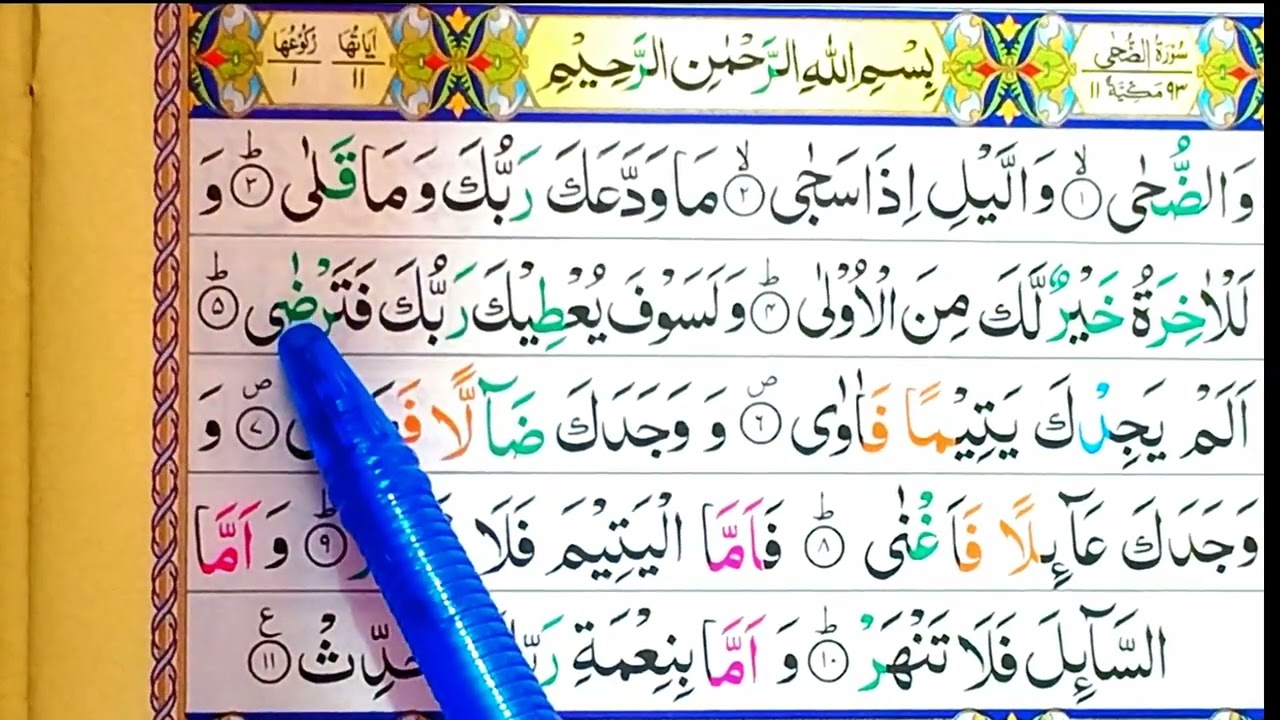 سُوْرَةُ الضُّحٰى
٩٣ مَكِّيَّةٌ ١١
بِسْمِ اللهِ الرَّحْمٰنِ الرَّحِيْمِ
اٰيَاتُهَا ١١
رُكُوْعُهَا ١
وَالضُّحٰى ۙ‏ ١ وَالَّيْلِ اِذَا سَجٰى ۙ‏ ٢ مَا وَدَّعَكَ رَبُّكَ وَمَا قَلٰى ؕ‏ ٣ وَ
لَلْاٰخِرَةُ خَيْرٌ لَّكَ مِنَ الْاُوْلٰى ؕ‏ ٤ وَلَسَوْفَ يُعْطِيْكَ رَبُّكَ فَتَرْضٰى ؕ‏ ٥
اَلَمْ يَجِدْكَ يَتِيْمًا فَاٰوٰى ۖ‏ ٦ وَ وَجَدَكَ ضَآلًّا ٧ وَ
وَجَدَكَ عَآىِٕلًا فَاَغْنٰى ؕ‏ ٨ فَاَمَّا الْيَتِيْمَ فَلَا ؕ‏ ٩ وَ اَمَّا
السَّآىِٕلَ فَلَا تَنْهَرْ ؕ‏ ١٠ وَ اَمَّا بِنِعْمَةِ ١١ ع